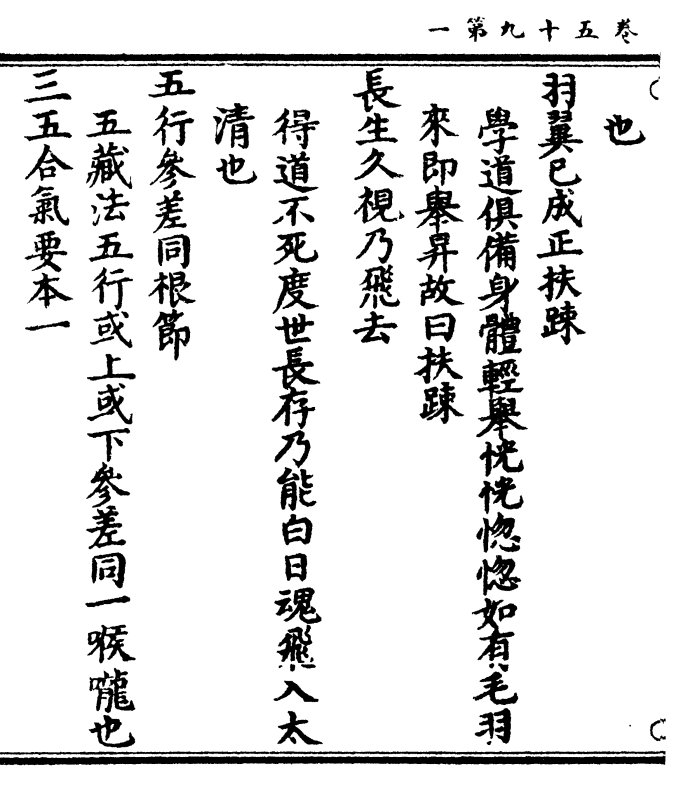 卷五十九第一
也
羽翼已成正扶踈
學道俱備身體輕舉恍恍惚惚如有毛羽
來即舉昇故曰扶踈
長生久視乃飛去
得道不死度世長存乃能白日魂飛入太
清也
五行參差同根節
五藏法五行或上或下參差同一喉嚨也
三五合氣要本一